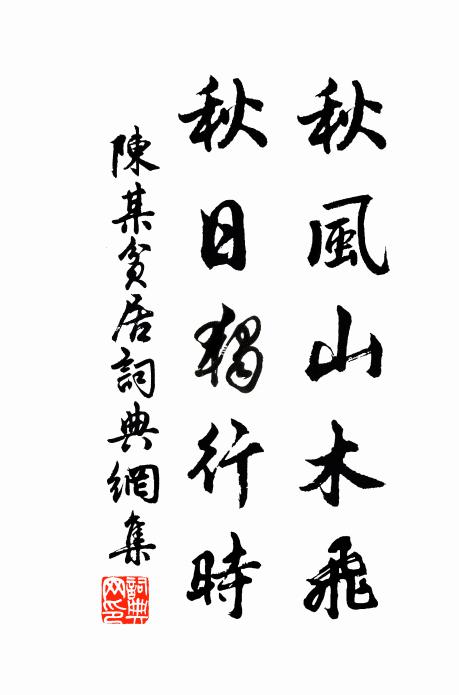 秋風山木飛
秋日獨行時
陳某貧居詞典網集
詞典
网印